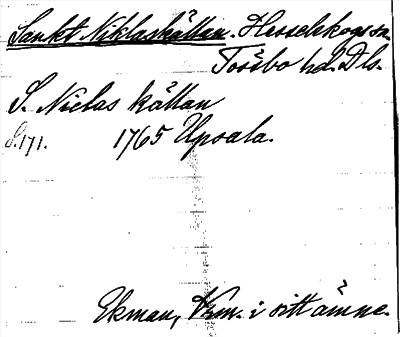 Sankt Niklaskällan. Hesselskogs sn.
Tössbo hd. Dls.
S. Niclas källan
S. 171. 1765 Upsala.
Ekman, Vkm. i sitt ämne.